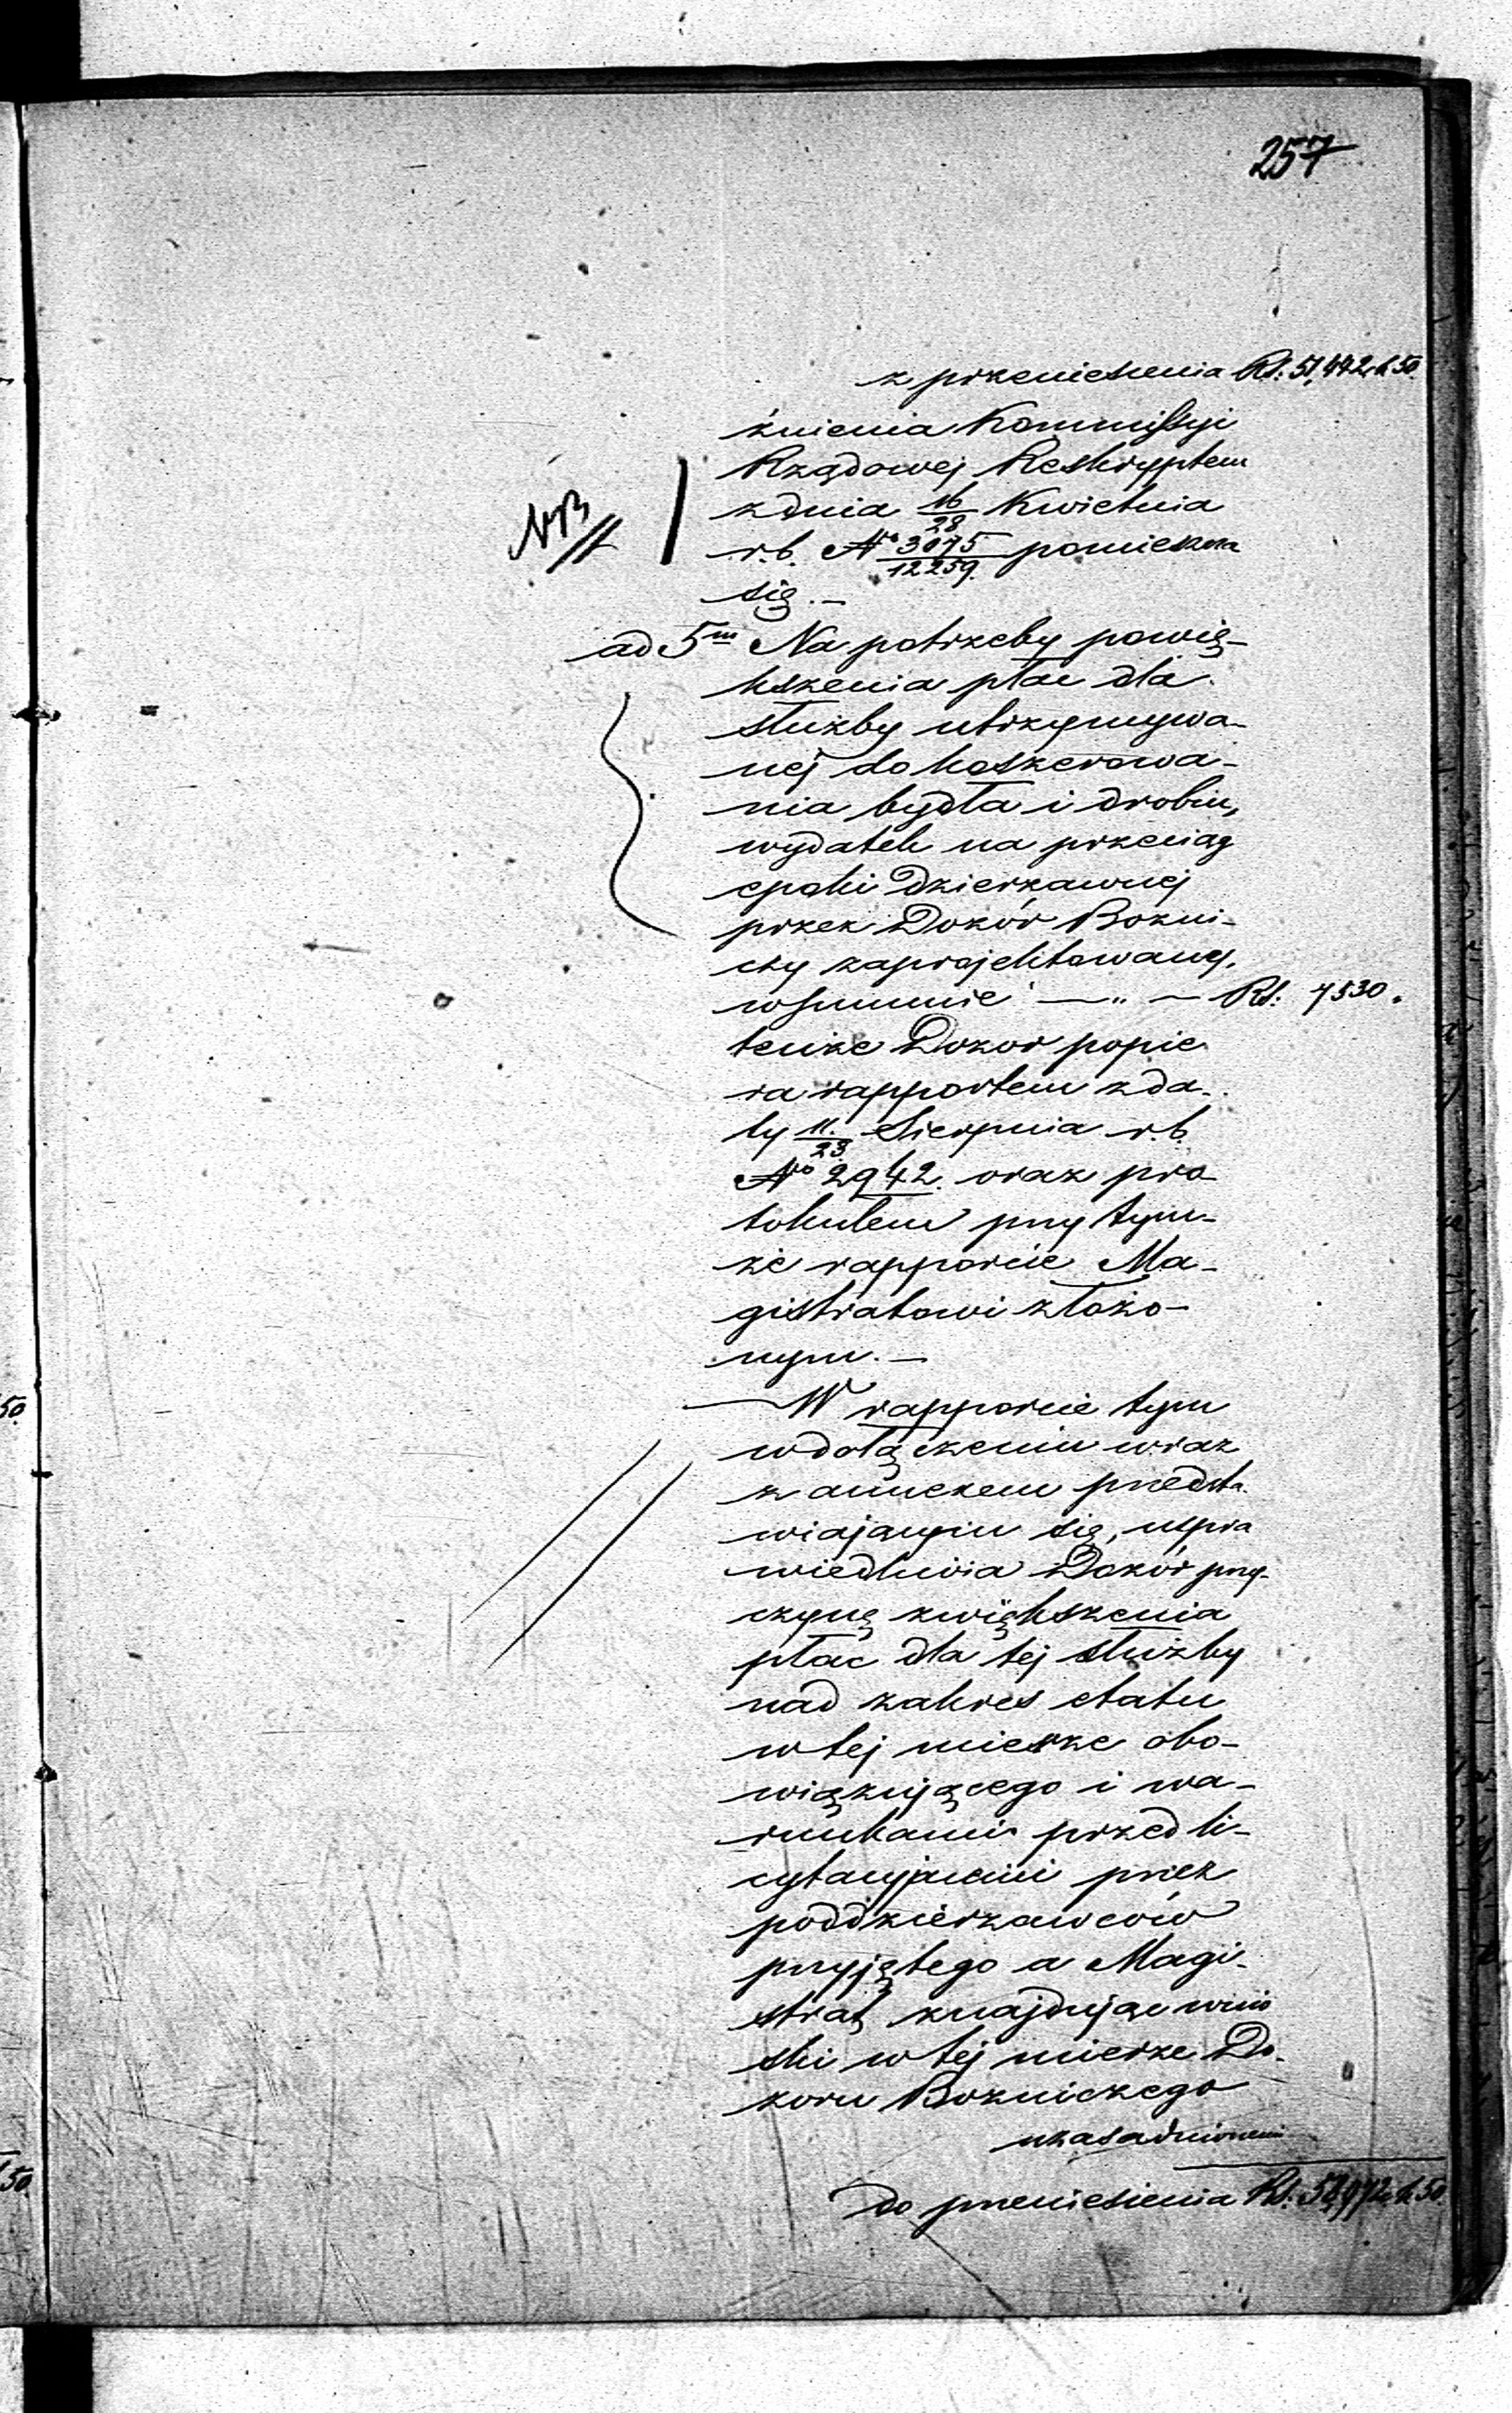 257
z przeniesienia Rs. 51,442 k 50.
żnienia Kommissyi
Rządowej Reskryptem
z dnia 16/28 Kwietnia
r.b. No 3075/12259. pomieszcza
się. —
NB
ad 5m Na potrzeby powię-
kszenia płac dla
służby utrzymywa-
nej do koszerowa-
nia bydła i drobiu,
wydatek na przeciąg
epoki dzierżawnej
przez Dozór Bożni-
czy zaprojektowany,
w summie — „ — Rs. 7530.
tenże Dozor popie
ra rapportem z da-
ty 11/23 Sierpnia r.b.
No 2942. oraz pro
tokułem przy tym-
że rapporcie Ma-
gistratowi złożo-
nym. —
— W rapporcie tym
w dołączeniu wraz
z annexem przedsta
wiającym się, uspra
wiedliwia Dozór przy-
czynę zwiększenia
płac dla tej służby
nad zakres etatu
w tej mierze obo-
wiązującego i wa-
runkami przed li-
cytacyjnemi przez
poddzierżawców
przyjętego a Magi-
strat znajdując wnio
ski w tej mierze Do-
zoru Bożniczego
uzasadnionemi
do przeniesienia Rs. 58,972 k 50
50
50